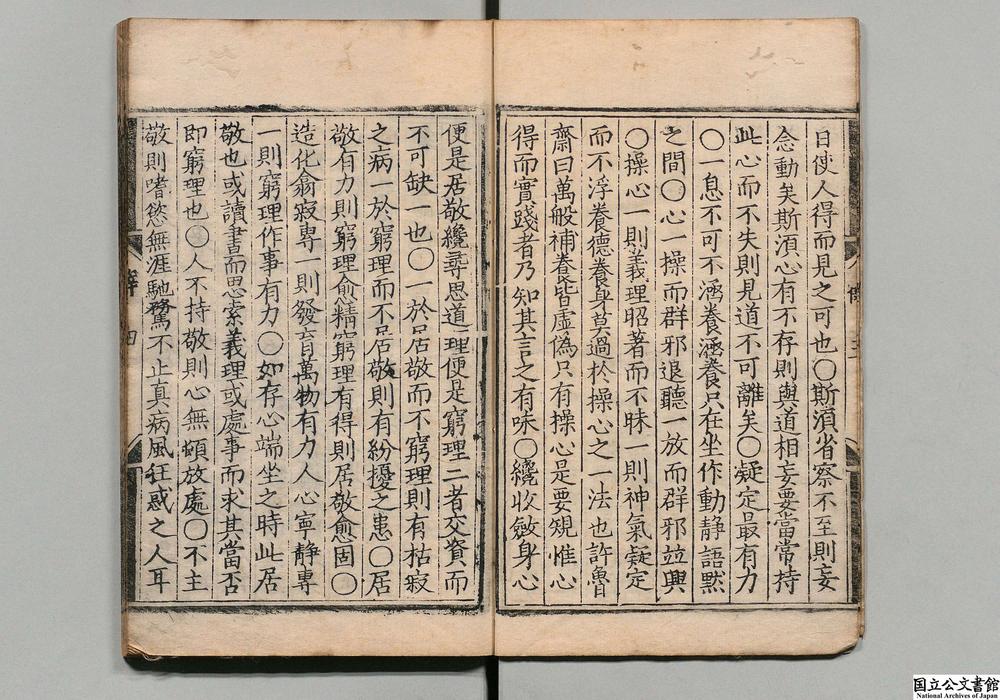 日使人得而見之可也○斯湏省察不至則妄
念動矣斯湏心有不存則與道相妄要當常持
此心而不失則見道不可離矣○凝定最有力
○一息不可不涵養涵養只在坐作動静語黙
之間○心一操而群邪退聽一放而群邪竝興
○操心一則義理昭著而不昧一則神氣凝定
而不浮養德養身莫過於操心之一法也許魯
齋曰萬般補養皆虛偽只有操心是要䂓惟心
得而實踐者乃知其言之有味○纔收斂身心
便是居敬纔尋思道理便是窮理二者交資而
不可缺一也○一於居敬而不窮理則有枯寂
之病一於窮理而不居敬則有紛擾之患○居
敬有力則窮理愈精窮理有得則居敬愈固○
造化翕寂専一則發育萬物有力人心寧静專
一則窮理作事有力○如存心端坐之時此居
敬也或讀書而思索義理或處事而求其當否
即窮理也○人不持敬則心無頓放處○不主
敬則嗜慾無涯馳騖不止真病風狂惑之人耳
四
国立公文書館
National Archives of Japan